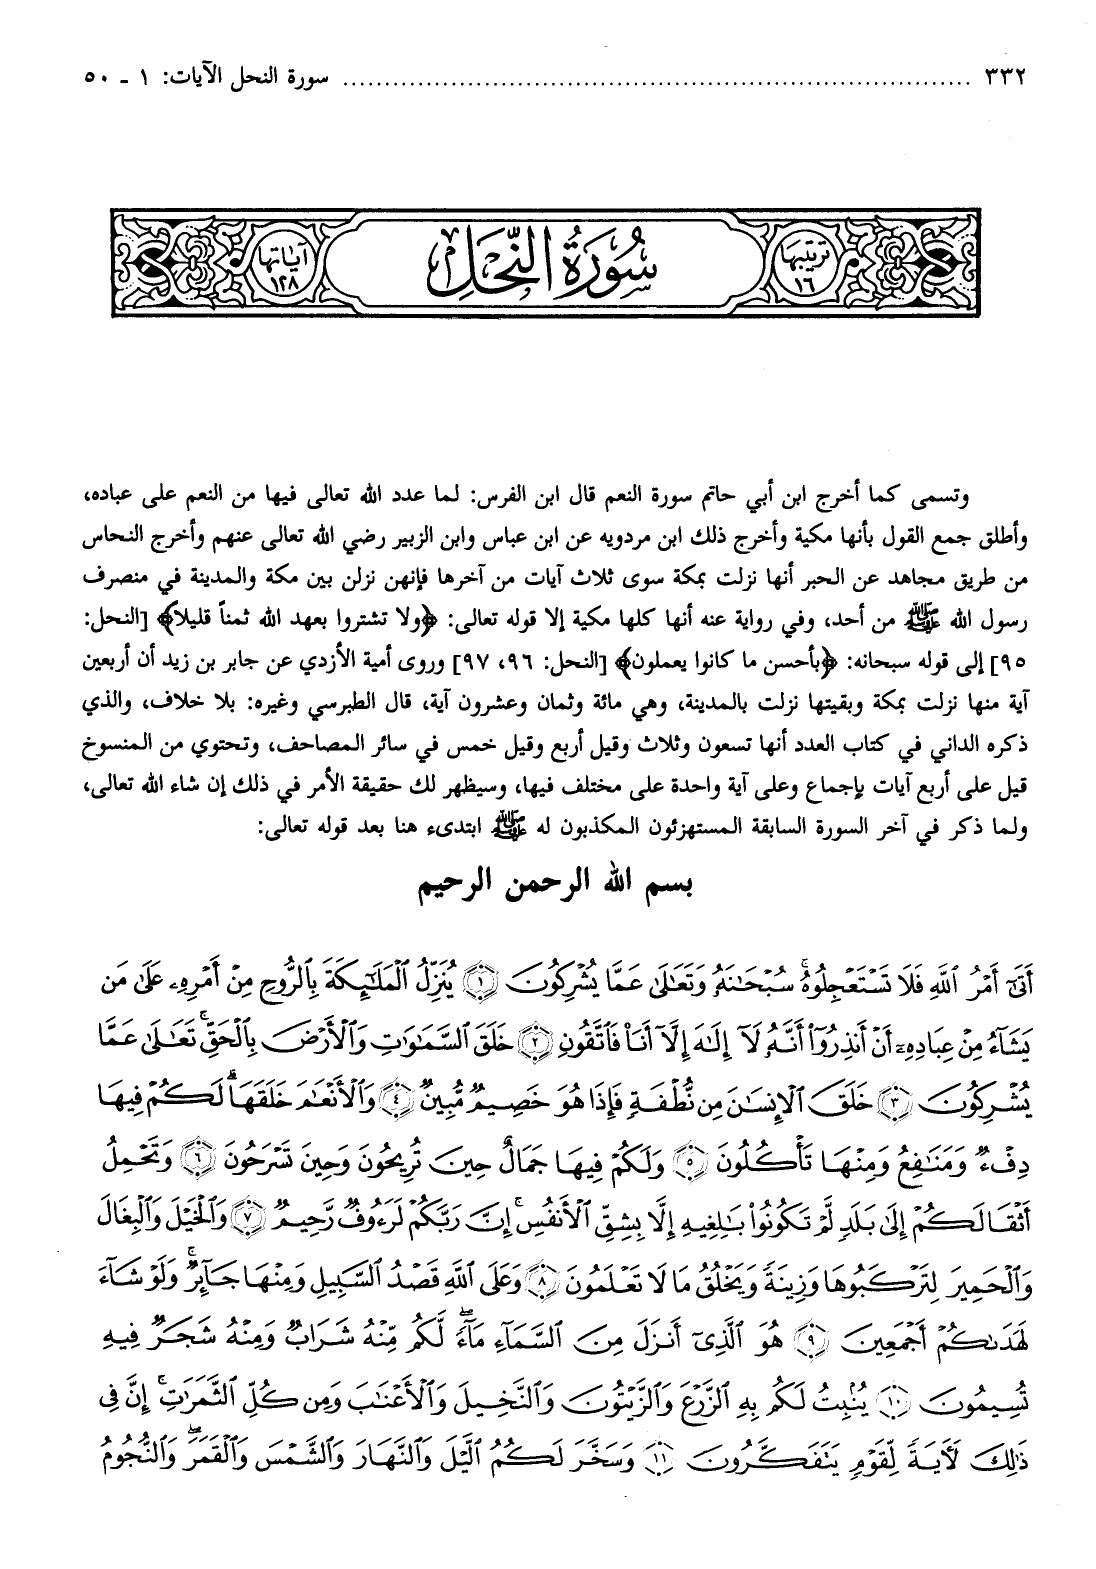 ٣٣٢ ........................................................ سورة النحل الآيات: ١ ـ ٥٠
ترتيبها ١٦
سُورَةُ النَّحْلِ
آياتها ١٢٨
وتسمى كما أخرج ابن أبي حاتم سورة النعم قال ابن الفرس: لما عدد الله تعالى فيها من النعم على عباده،
وأطلق جمع القول بأنها مكية وأخرج ذلك ابن مردويه عن ابن عباس وابن الزبير رضي الله تعالى عنهم وأخرج النحاس
من طريق مجاهد عن الحبر أنها نزلت بمكة سوى ثلاث آيات من آخرها فإنهن نزلن بين مكة والمدينة في منصرف
رسول الله ﷺ من أحد، وفي رواية عنه أنها كلها مكية إلا قوله تعالى: ﴿ولا تشتروا بعهد الله ثمناً قليلا﴾ [النحل:
٩٥] إلى قوله سبحانه: ﴿بأحسن ما كانوا يعملون﴾ [النحل: ٩٦، ٩٧] وروى أمية الأزدي عن جابر بن زيد أن أربعين
آية منها نزلت بمكة وبقيتها نزلت بالمدينة، وهي مائة وثمان وعشرون آية، قال الطبرسي وغيره: بلا خلاف، والذي
ذكره الداني في كتاب العدد أنها تسعون وثلاث وقيل أربع وقيل خمس في سائر المصاحف، وتحتوي من المنسوخ
قيل على أربع آيات بإجماع وعلى آية واحدة على مختلف فيها، وسيظهر لك حقيقة الأمر في ذلك إن شاء الله تعالى،
ولما ذكر في آخر السورة السابقة المستهزئون المكذبون له ﷺ ابتدىء هنا بعد قوله تعالى:
بسم الله الرحمن الرحيم
أَتَىٰٓ أَمْرُ ٱللَّهِ فَلَا تَسْتَعْجِلُوهُ ۚ سُبْحَـٰنَهُۥ وَتَعَـٰلَىٰ عَمَّا يُشْرِكُونَ ﴿١﴾ يُنَزِّلُ ٱلْمَلَـٰٓئِكَةَ بِٱلرُّوحِ مِنْ أَمْرِهِۦ عَلَىٰ مَن
يَشَآءُ مِنْ عِبَادِهِۦٓ أَنْ أَنذِرُوٓا۟ أَنَّهُۥ لَآ إِلَـٰهَ إِلَّآ أَنَا۠ فَٱتَّقُونِ ﴿٢﴾ خَلَقَ ٱلسَّمَـٰوَٰتِ وَٱلْأَرْضَ بِٱلْحَقِّ ۚ تَعَـٰلَىٰ عَمَّا
يُشْرِكُونَ ﴿٣﴾ خَلَقَ ٱلْإِنسَـٰنَ مِن نُّطْفَةٍ فَإِذَا هُوَ خَصِيمٌ مُّبِينٌ ﴿٤﴾ وَٱلْأَنْعَـٰمَ خَلَقَهَا ۗ لَكُمْ فِيهَا
دِفْءٌ وَمَنَـٰفِعُ وَمِنْهَا تَأْكُلُونَ ﴿٥﴾ وَلَكُمْ فِيهَا جَمَالٌ حِينَ تُرِيحُونَ وَحِينَ تَسْرَحُونَ ﴿٦﴾ وَتَحْمِلُ
أَثْقَالَكُمْ إِلَىٰ بَلَدٍ لَّمْ تَكُونُوا۟ بَـٰلِغِيهِ إِلَّا بِشِقِّ ٱلْأَنفُسِ ۚ إِنَّ رَبَّكُمْ لَرَءُوفٌ رَّحِيمٌ ﴿٧﴾ وَٱلْخَيْلَ وَٱلْبِغَالَ
وَٱلْحَمِيرَ لِتَرْكَبُوهَا وَزِينَةً وَيَخْلُقُ مَا لَا تَعْلَمُونَ ﴿٨﴾ وَعَلَى ٱللَّهِ قَصْدُ ٱلسَّبِيلِ وَمِنْهَا جَآئِرٌ ۚ وَلَوْ شَآءَ
لَهَدَىٰكُمْ أَجْمَعِينَ ﴿٩﴾ هُوَ ٱلَّذِىٓ أَنزَلَ مِنَ ٱلسَّمَآءِ مَآءً ۖ لَّكُم مِّنْهُ شَرَابٌ وَمِنْهُ شَجَرٌ فِيهِ
تُسِيمُونَ ﴿١٠﴾ يُنۢبِتُ لَكُم بِهِ ٱلزَّرْعَ وَٱلزَّيْتُونَ وَٱلنَّخِيلَ وَٱلْأَعْنَـٰبَ وَمِن كُلِّ ٱلثَّمَرَٰتِ ۗ إِنَّ فِى
ذَٰلِكَ لَـَٔايَةً لِّقَوْمٍ يَتَفَكَّرُونَ ﴿١١﴾ وَسَخَّرَ لَكُمُ ٱلَّيْلَ وَٱلنَّهَارَ وَٱلشَّمْسَ وَٱلْقَمَرَ ۖ وَٱلنُّجُومُ